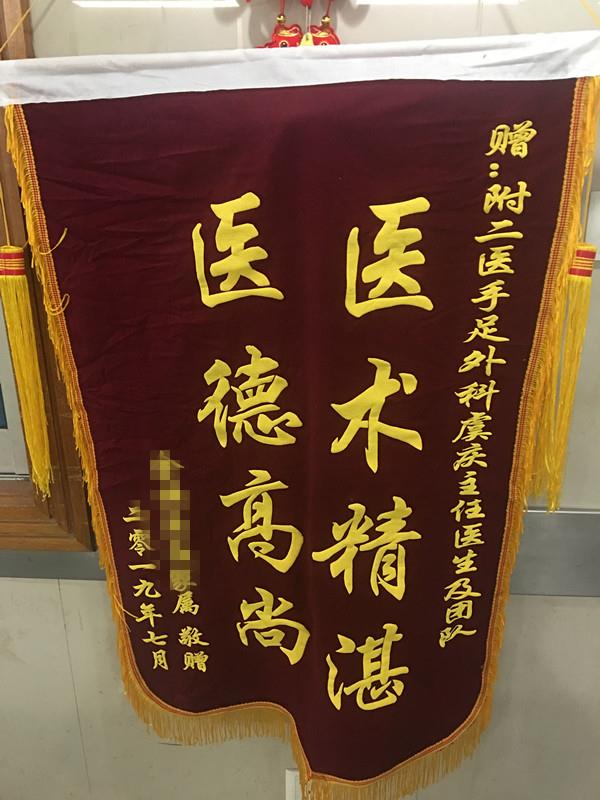 赠：附二医手足外科虞庆主任医生及团队
医术精湛
医德高尚
家属 敬赠
二零一九年七月